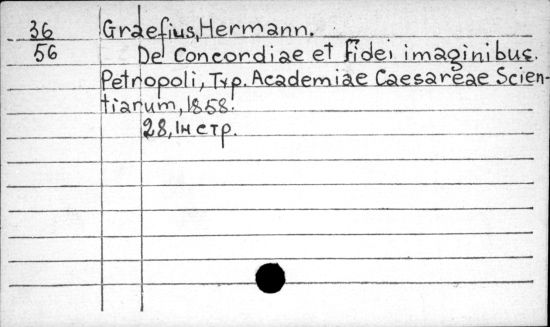 36 Graefius, Hermann.
56 De Concordiae et Fidei imaginibus.
Petropoli, Typ. Academiae Caesareae Scien-
tiarum, 1858.
28, Iн стр.